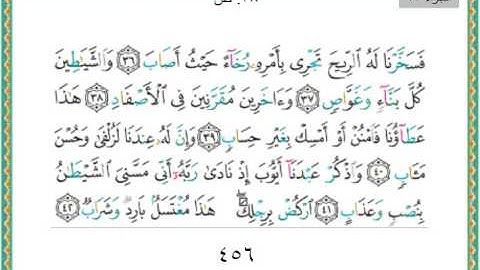 فَسَخَّرْنَا لَهُ الرِّيحَ تَجْرِي بِأَمْرِهِ رُخَاءً حَيْثُ أَصَابَ ﴿٣٦﴾ وَالشَّيَاطِينَ
كُلَّ بَنَّاءٍ وَغَوَّاصٍ ﴿٣٧﴾ وَءَاخَرِينَ مُقَرَّنِينَ فِي الْأَصْفَادِ ﴿٣٨﴾ هَٰذَا
عَطَاؤُنَا فَامْنُنْ أَوْ أَمْسِكْ بِغَيْرِ حِسَابٍ ﴿٣٩﴾ وَإِنَّ لَهُ عِنْدَنَا لَزُلْفَىٰ وَحُسْنَ
مَـَٔابٍ ﴿٤٠﴾ وَاذْكُرْ عَبْدَنَا أَيُّوبَ إِذْ نَادَىٰ رَبَّهُ أَنِّي مَسَّنِيَ الشَّيْطَٰنُ
بِنُصْبٍ وَعَذَابٍ ﴿٤١﴾ ارْكُضْ بِرِجْلِكَ هَٰذَا مُغْتَسَلٌ بَارِدٌ وَشَرَابٌ ﴿٤٢﴾
٤٥٦